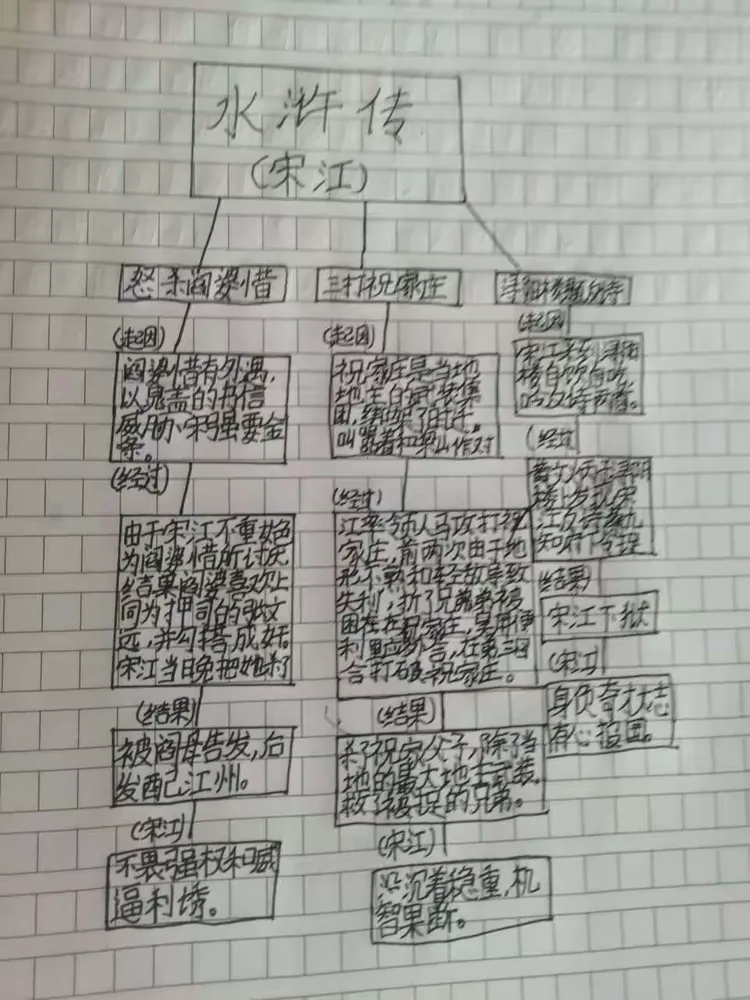 水浒传
(宋江)
怒杀阎婆惜
(起因)
阎婆惜有外遇,
以晁盖的书信
威胁宋强要金
条。
(经过)
由于宋江不重女色
为阎婆惜所讨厌
结果阎婆喜欢上
同为押司的张文
远,并勾搭成奸。
宋江当日晚把她杀了
(结果)
被阎母告发,后
发配江州。
(宋江)
不畏强权和威
逼利诱。
三打祝家庄
(起因)
祝家庄是当地
地主的武装集
团,绑架了时迁,
叫嚣着和梁山作对
(经过)
江率领人马攻打祝
家庄,前两次由于地
形不熟和轻敌导致
失利,折了兄弟被
困在在祝家庄,
利里应外合,在第三回
合打破祝家庄。
(结果)
杀了祝家父子,除了当
地的最大地主武装,
救了被捉的兄弟。
(宋江)
沉着稳重,机
智果断。
浔阳楼题反诗
(起因)
宋江来到浔阳
楼自饮自吹
吟反诗
(经过)
黄文炳在浔阳
楼上发现宋
江反诗
知府下令捉
结果)
宋江下狱
(宋江)
身负奇才大志
有心报国。